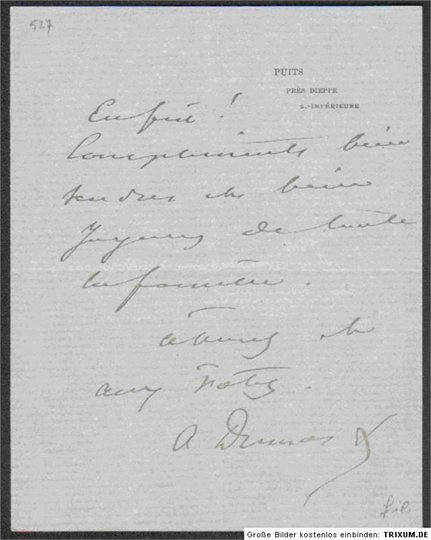 527
PUITS
PRÈS DIEPPE
S.-INFÉRIEURE
Enfin !
Compliments bien
tendres et bien
joyeux de toute
la famille.
à vous et
aux vôtres.
A Dumas f
fils
Große Bilder kostenlos einbinden: TRIXUM.DE